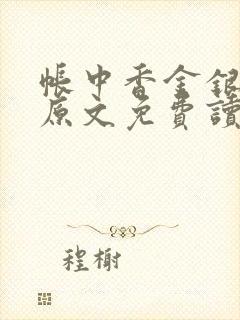 帳中香金銀
原文免費讀
程榭